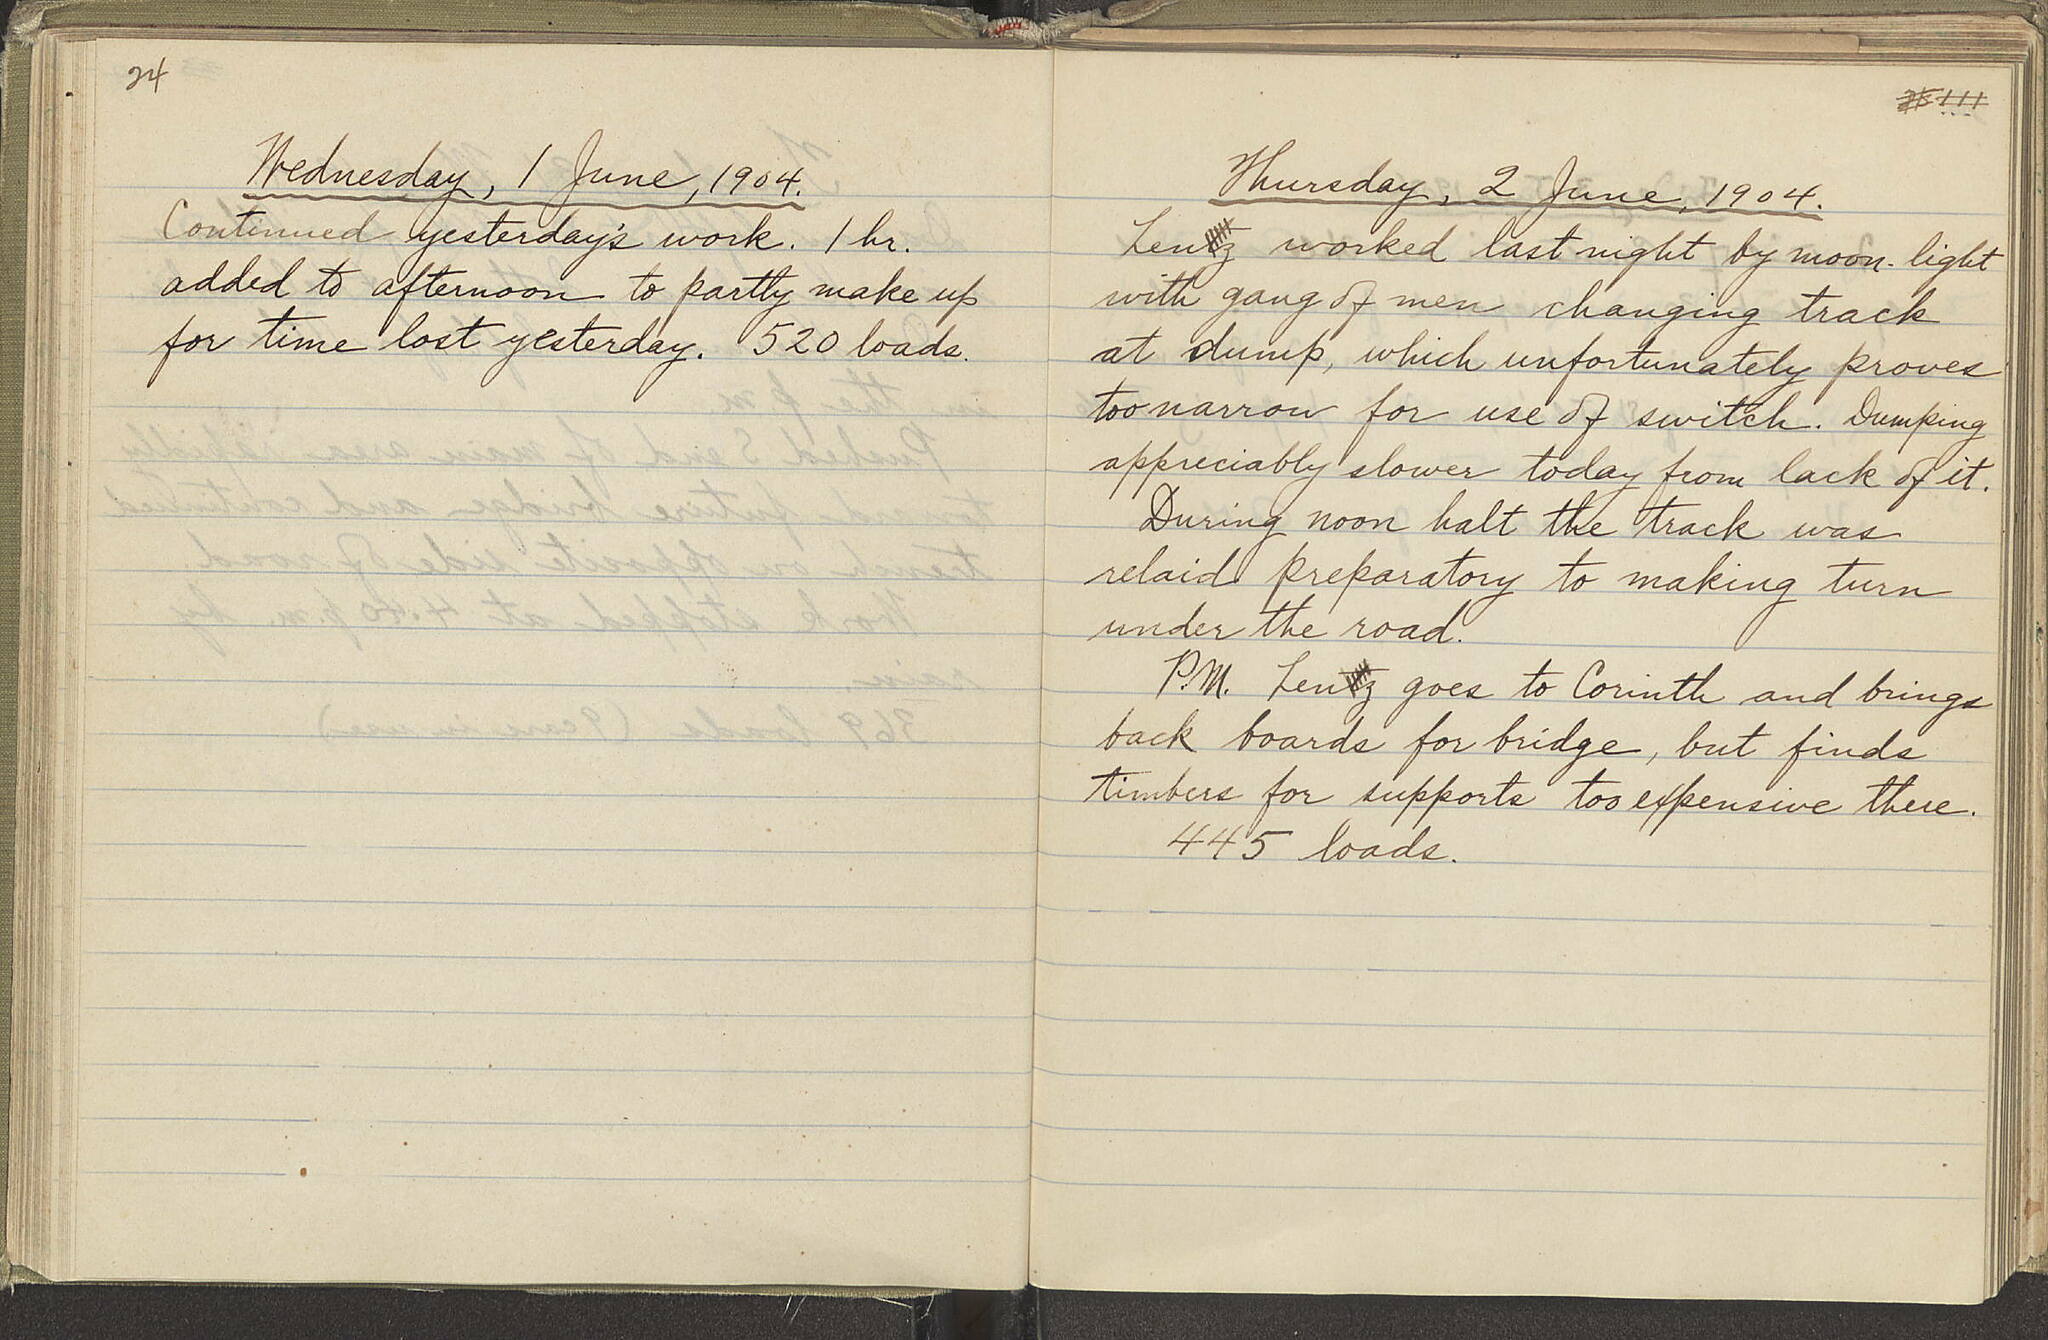 24
Wednesday, 1 June, 1904.
Continued yesterday's work. 1 hr.
added to afternoon to partly make up
for time lost yesterday. 520 loads.
Thursday, 2 June, 1904.
Lentz worked last night by moon-light
with gang of men changing track
at dump, which unfortunately proves
too narrow for use of switch. Dumping
appreciably slower today from lack of it.
During noon halt the track was
relaid preparatory to making turn
under the road.
P.M. Lentz goes to Corinth and brings
back boards for bridge, but finds
timbers for supports too expensive there.
445 loads.